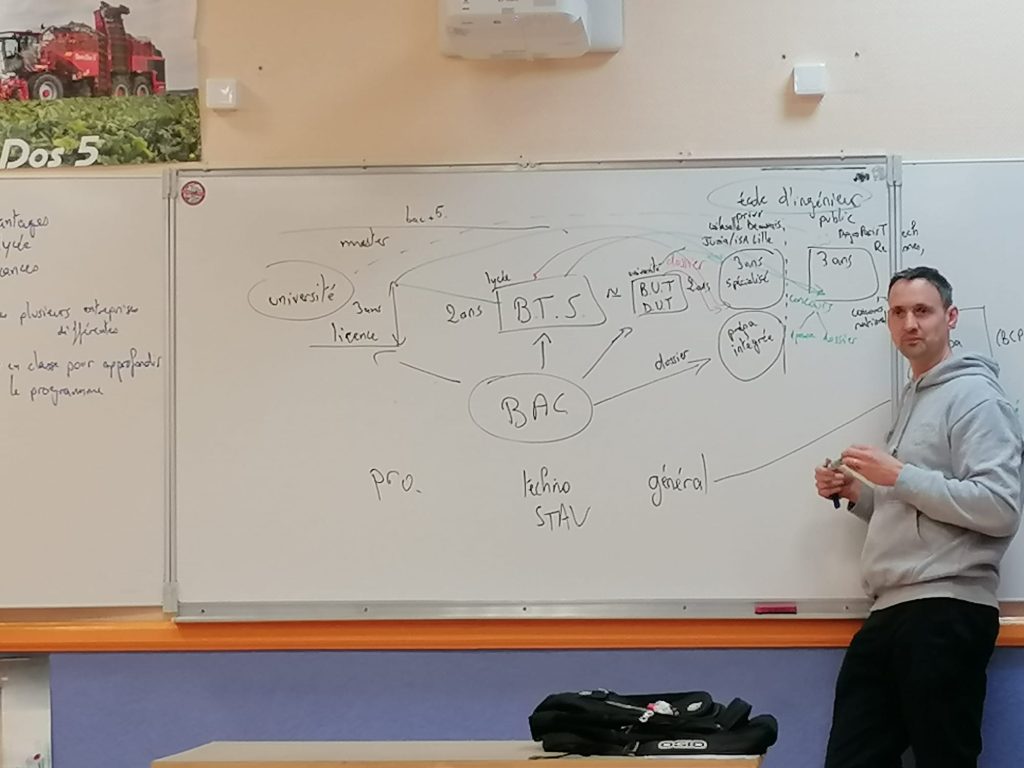 Dos 5
antages
cycle
ances
plusieurs entreprises
différentes
en classe pour approfondir
le programme
bac+5
master
université
3ans
licence
lycée
2ans
B.T.S.
≈
université
B.U.T
D.U.T
2ans
dossier
école d'ingénieur
privé
public
Lasalle Beauvais,
Junia/ISA Lille
AgroParisTech
Rennes,
3ans
spécialisé
3ans
concours
dossier
prépa
intégrée
dossier
BAC
pro.
techno
STAV
général
(BCP
OGIO